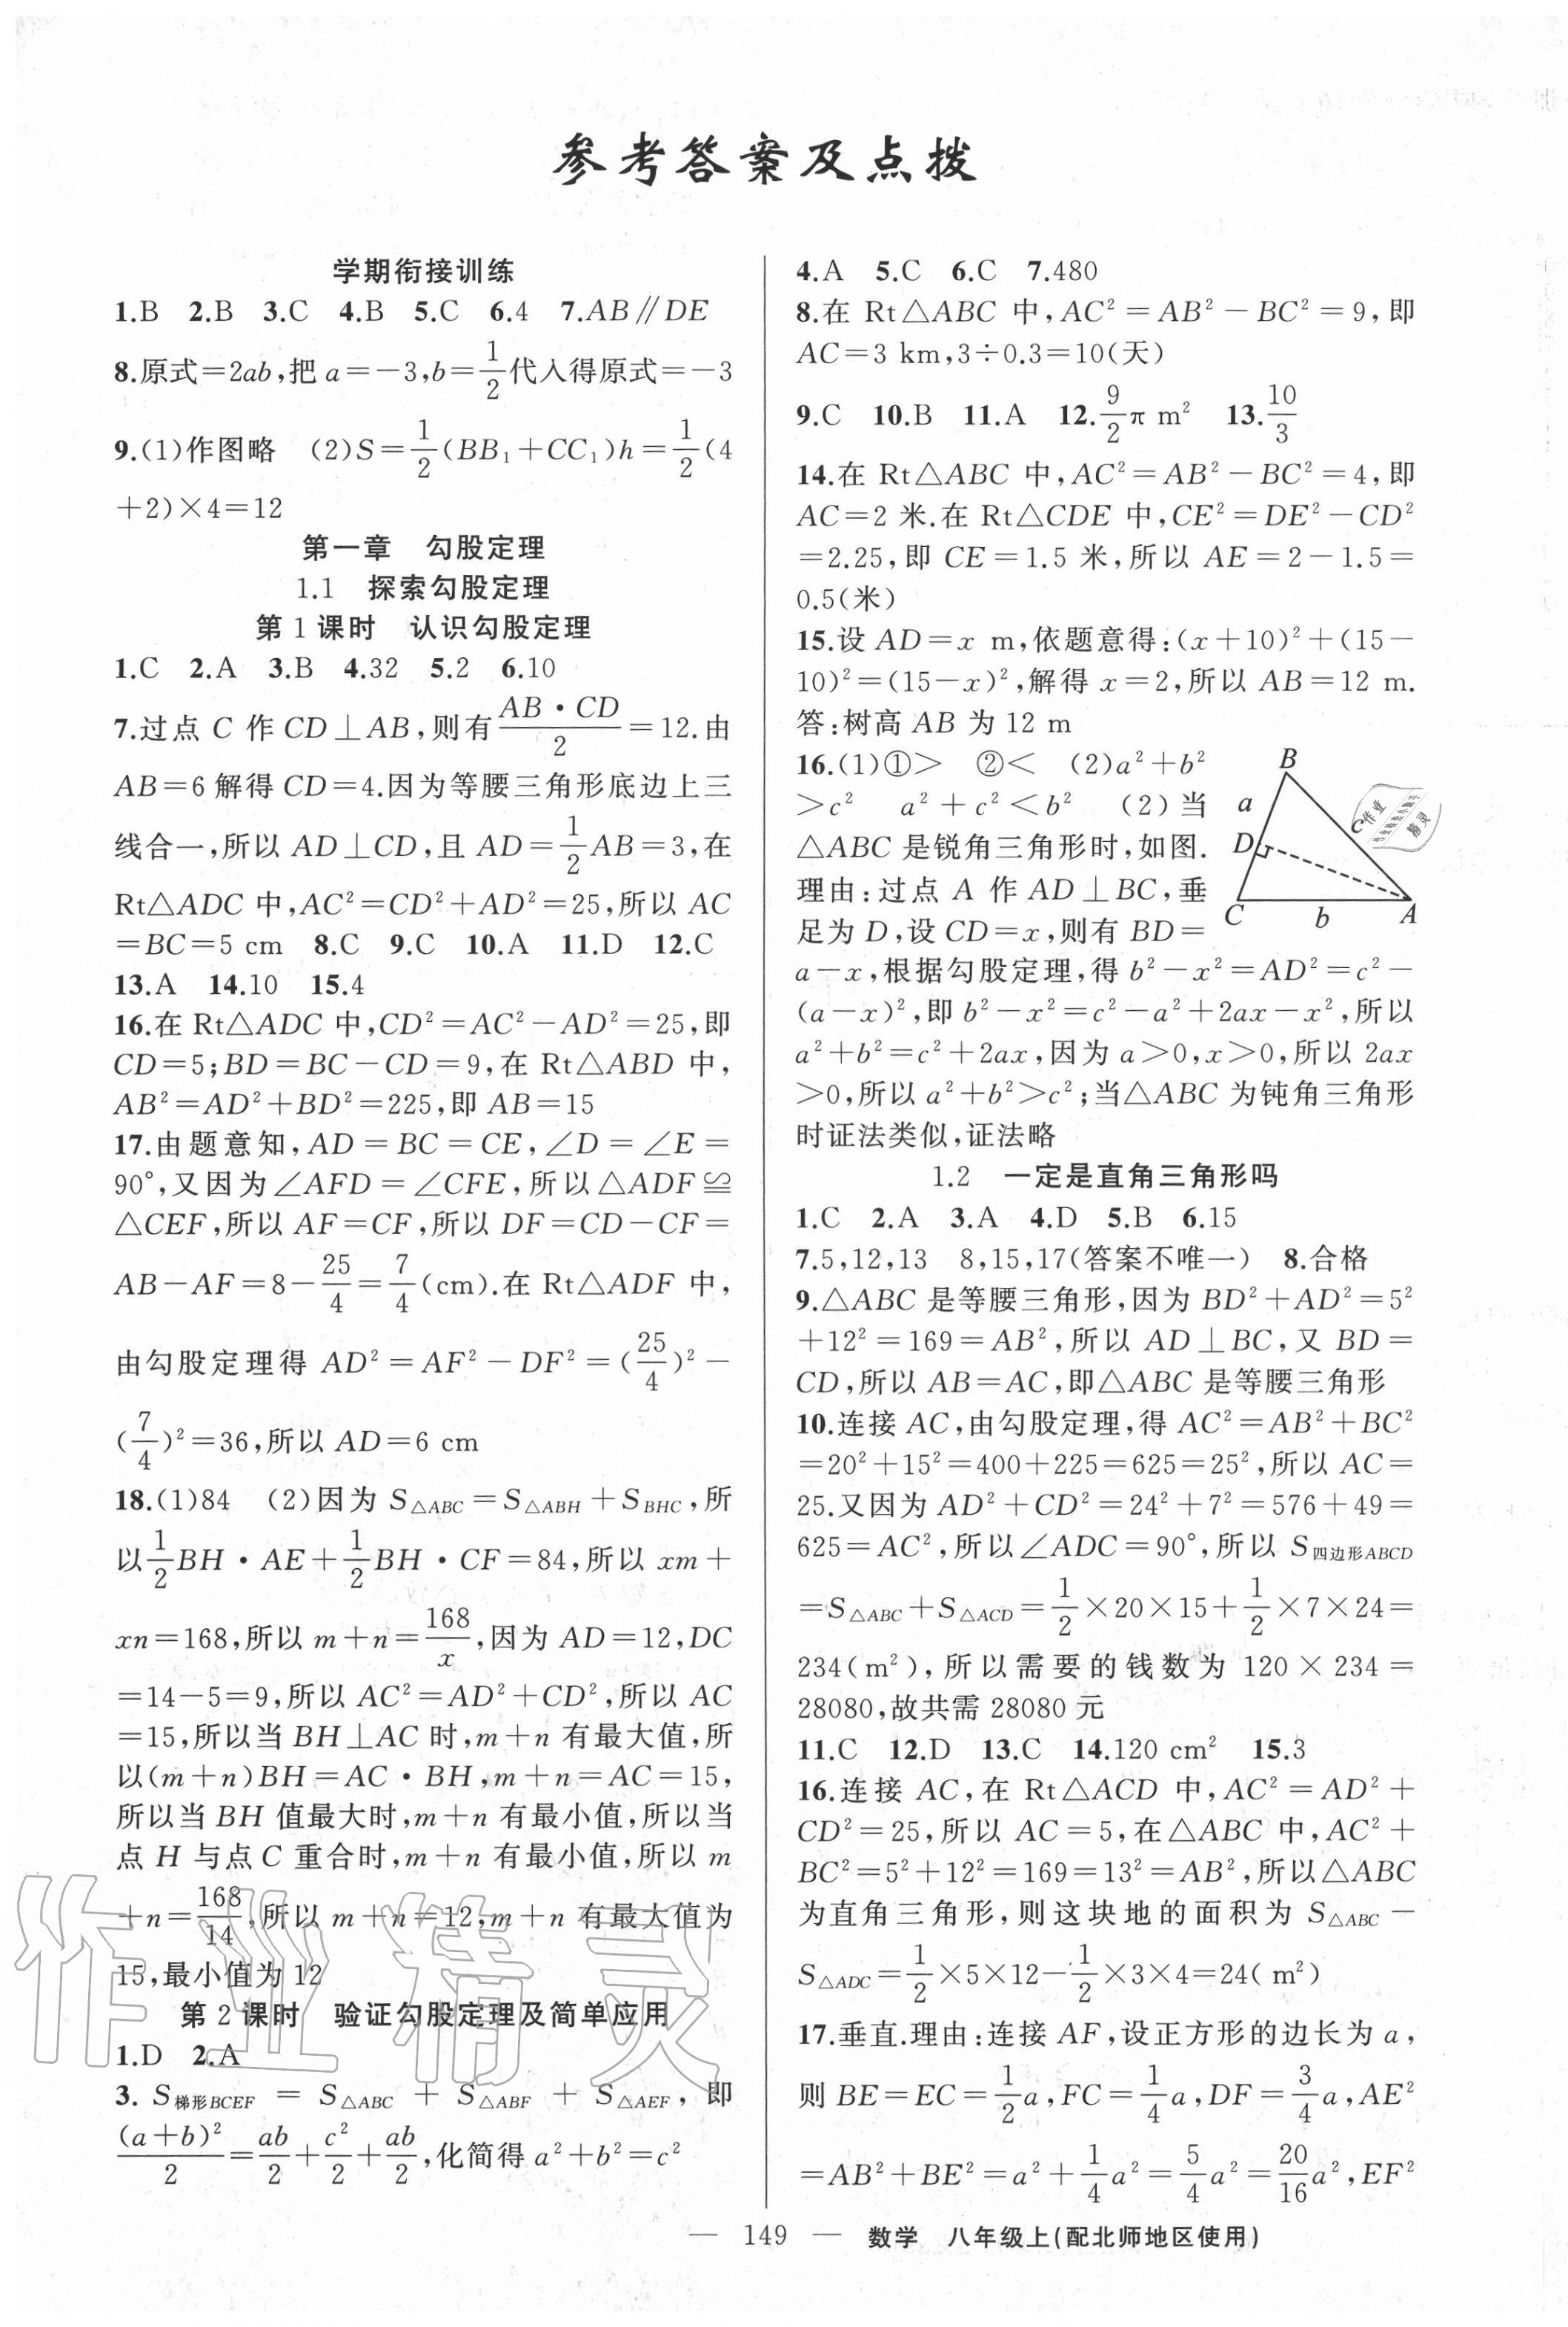 参考答案及点拨
学期衔接训练
1.B 2.B 3.C 4.B 5.C 6.4 7.AB∥DE
8.原式=2ab,把 a=-3,b=1/2代入得原式=-3
9.(1)作图略 (2)S=1/2(BB₁+CC₁)h=1/2(4
+2)×4=12
第一章 勾股定理
1.1 探索勾股定理
第1课时 认识勾股定理
1.C 2.A 3.B 4.32 5.2 6.10
7.过点 C 作 CD⊥AB,则有(AB·CD)/2=12.由
AB=6解得CD=4.因为等腰三角形底边上三
线合一,所以 AD⊥CD,且 AD=1/2AB=3,在
Rt△ADC 中,AC²=CD²+AD²=25,所以 AC
=BC=5 cm 8.C 9.C 10.A 11.D 12.C
13.A 14.10 15.4
16.在 Rt△ADC 中,CD²=AC²-AD²=25,即
CD=5;BD=BC-CD=9,在 Rt△ABD 中,
AB²=AD²+BD²=225,即 AB=15
17.由题意知,AD=BC=CE,∠D=∠E=
90°,又因为∠AFD=∠CFE,所以△ADF≌
△CEF,所以 AF=CF,所以 DF=CD-CF=
AB-AF=8-25/4=7/4(cm).在 Rt△ADF 中,
由勾股定理得 AD²=AF²-DF²=(25/4)²-
(7/4)²=36,所以 AD=6 cm
18.(1)84 (2)因为 S△ABC=S△ABH+SBHC,所
以1/2BH·AE+1/2BH·CF=84,所以 xm+
xn=168,所以 m+n=168/x,因为 AD=12,DC
=14-5=9,所以 AC²=AD²+CD²,所以 AC
=15,所以当 BH⊥AC 时,m+n 有最大值,所
以(m+n)BH=AC·BH,m+n=AC=15,
所以当 BH 值最大时,m+n 有最小值,所以当
点 H 与点 C 重合时,m+n 有最小值,所以 m
+n=168/14,所以 m+n=12,m+n 有最大值为
15,最小值为 12
第2课时 验证勾股定理及简单应用
1.D 2.A
3. S梯形BCEF = S△ABC + S△ABF + S△AEF, 即
(a+b)²/2=ab/2+c²/2+ab/2,化简得 a²+b²=c²
4.A 5.C 6.C 7.480
8.在 Rt△ABC 中,AC²=AB²-BC²=9,即
AC=3 km,3÷0.3=10(天)
9.C 10.B 11.A 12.9/2π m² 13.10/3
14.在 Rt△ABC 中,AC²=AB²-BC²=4,即
AC=2 米.在 Rt△CDE 中,CE²=DE²-CD²
=2.25,即 CE=1.5 米,所以 AE=2-1.5=
0.5(米)
15.设 AD=x m,依题意得:(x+10)²+(15-
10)²=(15-x)²,解得 x=2,所以 AB=12 m.
答:树高 AB 为 12 m
16.(1)①> ②< (2)a²+b²
>c² a²+c²<b² (2)当
△ABC 是锐角三角形时,如图.
理由:过点 A 作 AD⊥BC,垂
足为 D,设 CD=x,则有 BD=
B
a
D
C
b
A
c
作业
精灵
a-x,根据勾股定理,得 b²-x²=AD²=c²-
(a-x)²,即 b²-x²=c²-a²+2ax-x²,所以
a²+b²=c²+2ax,因为 a>0,x>0,所以 2ax
>0,所以 a²+b²>c²;当△ABC 为钝角三角形
时证法类似,证法略
1.2 一定是直角三角形吗
1.C 2.A 3.A 4.D 5.B 6.15
7.5,12,13 8,15,17(答案不唯一) 8.合格
9.△ABC 是等腰三角形,因为 BD²+AD²=5²
+12²=169=AB²,所以 AD⊥BC,又 BD=
CD,所以 AB=AC,即△ABC 是等腰三角形
10.连接 AC,由勾股定理,得 AC²=AB²+BC²
=20²+15²=400+225=625=25²,所以 AC=
25.又因为 AD²+CD²=24²+7²=576+49=
625=AC²,所以∠ADC=90°,所以 S四边形ABCD
=S△ABC+S△ACD=1/2×20×15+1/2×7×24=
234(m²),所以需要的钱数为 120×234=
28080,故共需 28080 元
11.C 12.D 13.C 14.120 cm² 15.3
16.连接 AC,在 Rt△ACD 中,AC²=AD²+
CD²=25,所以 AC=5,在△ABC 中,AC²+
BC²=5²+12²=169=13²=AB²,所以△ABC
为直角三角形,则这块地的面积为 S△ABC-
S△ADC=1/2×5×12-1/2×3×4=24( m²)
17.垂直.理由:连接 AF,设正方形的边长为 a,
则 BE=EC=1/2a,FC=1/4a,DF=3/4a,AE²
=AB²+BE²=a²+1/4a²=5/4a²=20/16a²,EF²
作业精灵
— 149 — 数学 八年级上(配北师地区使用)